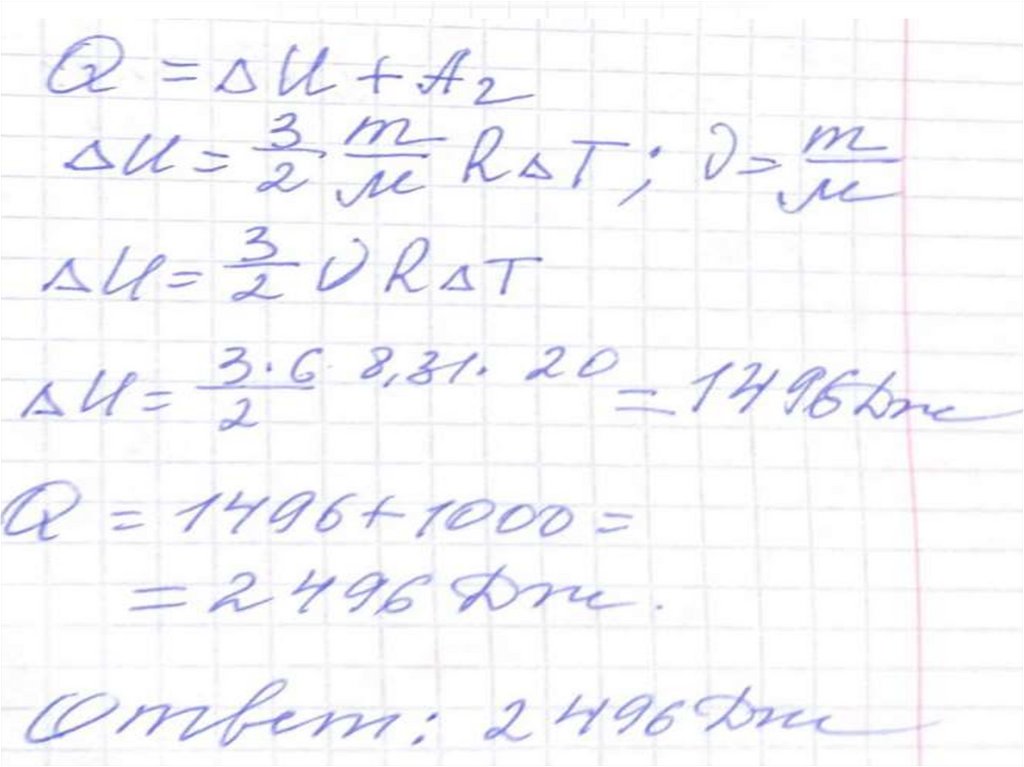 Q = ΔU + Aг
ΔU = 3/2 m/M RΔT; ν = m/M
ΔU = 3/2 ν RΔT
ΔU = 3·6/2 8,31· 20 = 1496 Дж
Q = 1496 + 1000 =
= 2 496 Дж.
Ответ: 2 496 Дж